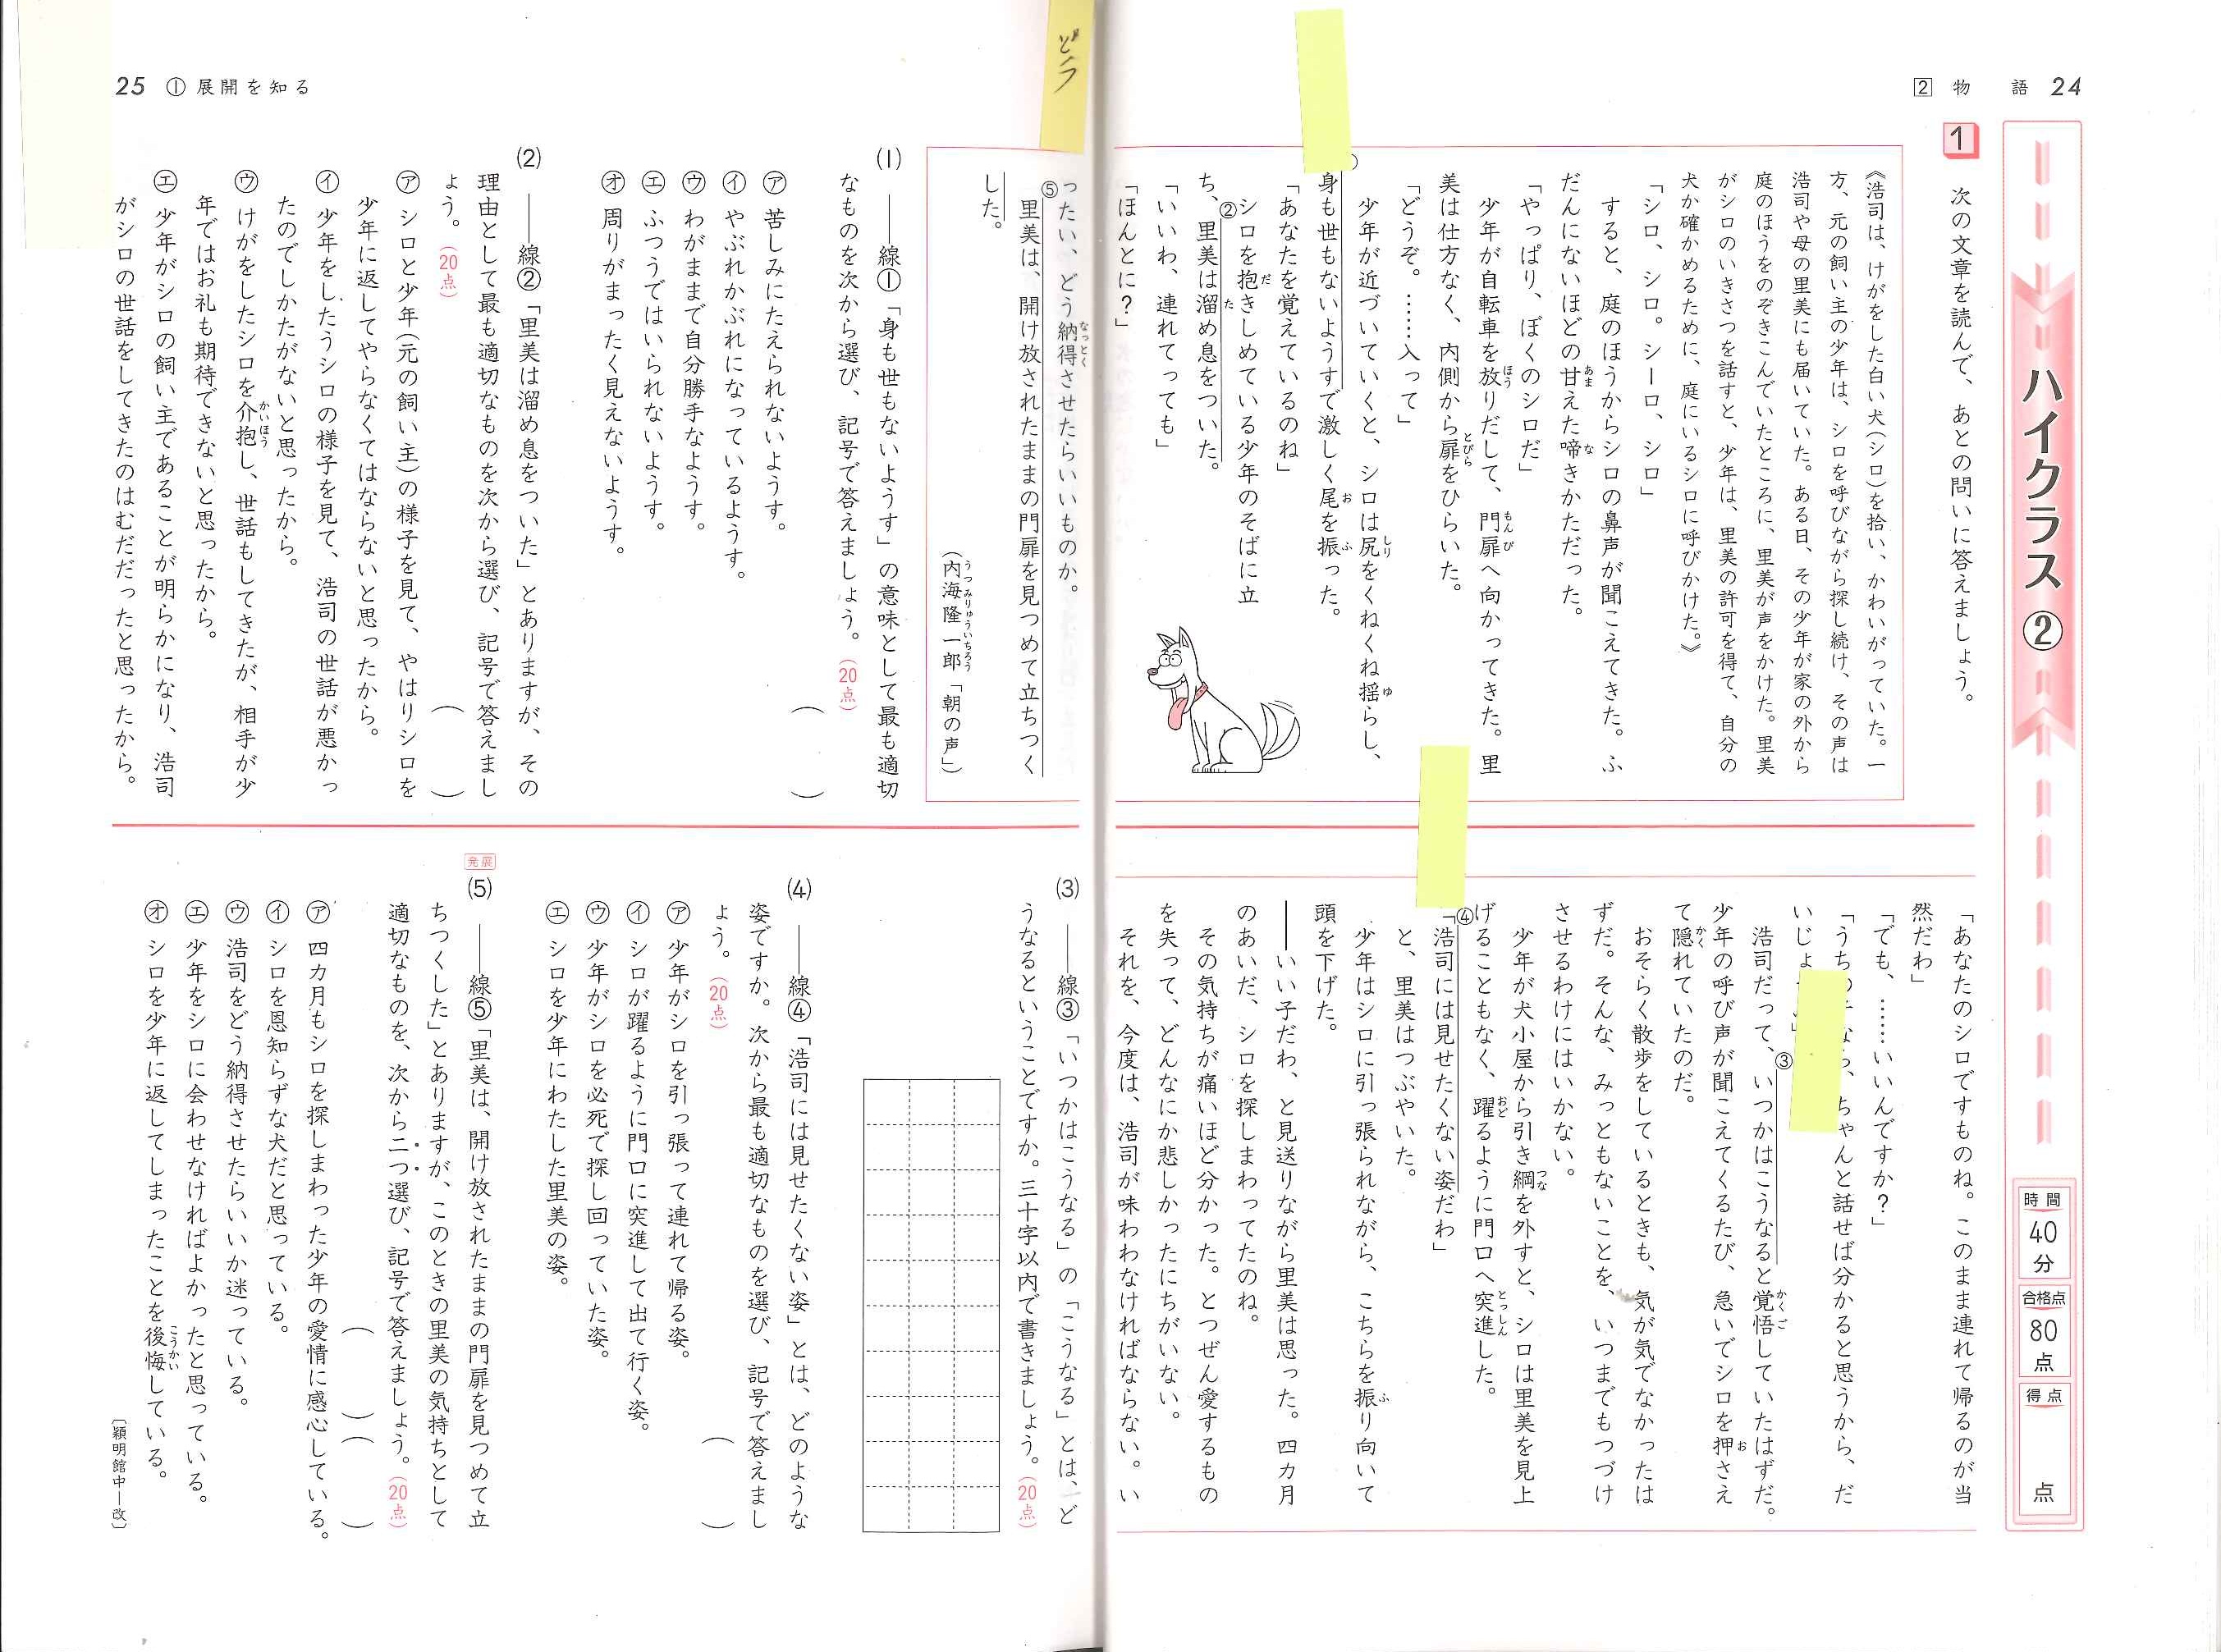 2 物語 24
ハイクラス②
時間
40
分
合格点
80
点
得点
点
1
次の文章を読んで、あとの問いに答えましょう。
《浩司は、けがをした白い犬(シロ)を拾い、かわいがっていた。一
方、元の飼い主の少年は、シロを呼びながら探し続け、その声は
浩司や母の里美にも届いていた。ある日、その少年が家の外から
庭のほうをのぞきこんでいたところに、里美が声をかけた。里美
がシロのいきさつを話すと、少年は、里美の許可を得て、自分の
犬か確かめるために、庭にいるシロに呼びかけた。》
「シロ、シロ。シーロ、シロ」
すると、庭のほうからシロの鼻声が聞こえてきた。ふ
だんにないほどの甘えた啼きかただった。
「やっぱり、ぼくのシロだ」
少年が自転車を放りだして、門扉へ向かってきた。里
美は仕方なく、内側から扉をひらいた。
「どうぞ。……入って」
少年が近づいていくと、シロは尻をくねくね揺らし、
身も世もないようすで激しく尾を振った。
「あなたを覚えているのね」
シロを抱きしめている少年のそばに立
ち、②里美は溜め息をついた。
「いいわ、連れてっても」
「ほんとに?」
「あなたのシロですものね。このまま連れて帰るのが当
然だわ」
「でも、……いいんですか?」
「うち ちゃんと話せば分かると思うから、だ
いじょ
浩司だって、③いつかはこうなると覚悟していたはずだ。
少年の呼び声が聞こえてくるたび、急いでシロを押さえ
て隠れていたのだ。
おそらく散歩をしているときも、気が気でなかったは
ずだ。そんな、みっともないことを、いつまでもつづけ
させるわけにはいかない。
少年が犬小屋から引き綱を外すと、シロは里美を見上
げることもなく、躍るように門口へ突進した。
「④浩司には見せたくない姿だわ」
と、里美はつぶやいた。
少年はシロに引っ張られながら、こちらを振り向いて
頭を下げた。
――いい子だわ、と見送りながら里美は思った。四カ月
のあいだ、シロを探しまわってたのね。
その気持ちが痛いほど分かった。とつぜん愛するもの
を失って、どんなにか悲しかったにちがいない。
それを、今度は、浩司が味わわなければならない。い
25 ①展開を知る
どこう
ったい、どう納得させたらいいものか。
⑤里美は、開け放されたままの門扉を見つめて立ちつく
した。
(内海隆一郎「朝の声」)
(1) ――線①「身も世もないようす」の意味として最も適切
なものを次から選び、記号で答えましょう。(20点)
( )
ア 苦しみにたえられないようす。
イ やぶれかぶれになっているようす。
ウ わがままで自分勝手なようす。
エ ふつうではいられないようす。
オ 周りがまったく見えないようす。
(2) ――線②「里美は溜め息をついた」とありますが、その
理由として最も適切なものを次から選び、記号で答えまし
ょう。(20点) ( )
ア シロと少年(元の飼い主)の様子を見て、やはりシロを
少年に返してやらなくてはならないと思ったから。
イ 少年をしたうシロの様子を見て、浩司の世話が悪かっ
たのでしかたがないと思ったから。
ウ けがをしたシロを介抱し、世話もしてきたが、相手が少
年ではお礼も期待できないと思ったから。
エ 少年がシロの飼い主であることが明らかになり、浩司
がシロの世話をしてきたのはむだだったと思ったから。
(3) ――線③「いつかはこうなる」の「こうなる」とは、ど
うなるということですか。三十字以内で書きましょう。(20点)
(4) ――線④「浩司には見せたくない姿」とは、どのような
姿ですか。次から最も適切なものを選び、記号で答えまし
ょう。(20点) ( )
ア 少年がシロを引っ張って連れて帰る姿。
イ シロが躍るように門口に突進して出て行く姿。
ウ 少年がシロを必死で探し回っていた姿。
エ シロを少年にわたした里美の姿。
発展
(5) ――線⑤「里美は、開け放されたままの門扉を見つめて立
ちつくした」とありますが、このときの里美の気持ちとして
適切なものを、次から二つ選び、記号で答えましょう。(20点)
( )( )
ア 四カ月もシロを探しまわった少年の愛情に感心している。
イ シロを恩知らずな犬だと思っている。
ウ 浩司をどう納得させたらいいか迷っている。
エ 少年をシロに会わせなければよかったと思っている。
オ シロを少年に返してしまったことを後悔している。
〔穎明館中―改〕